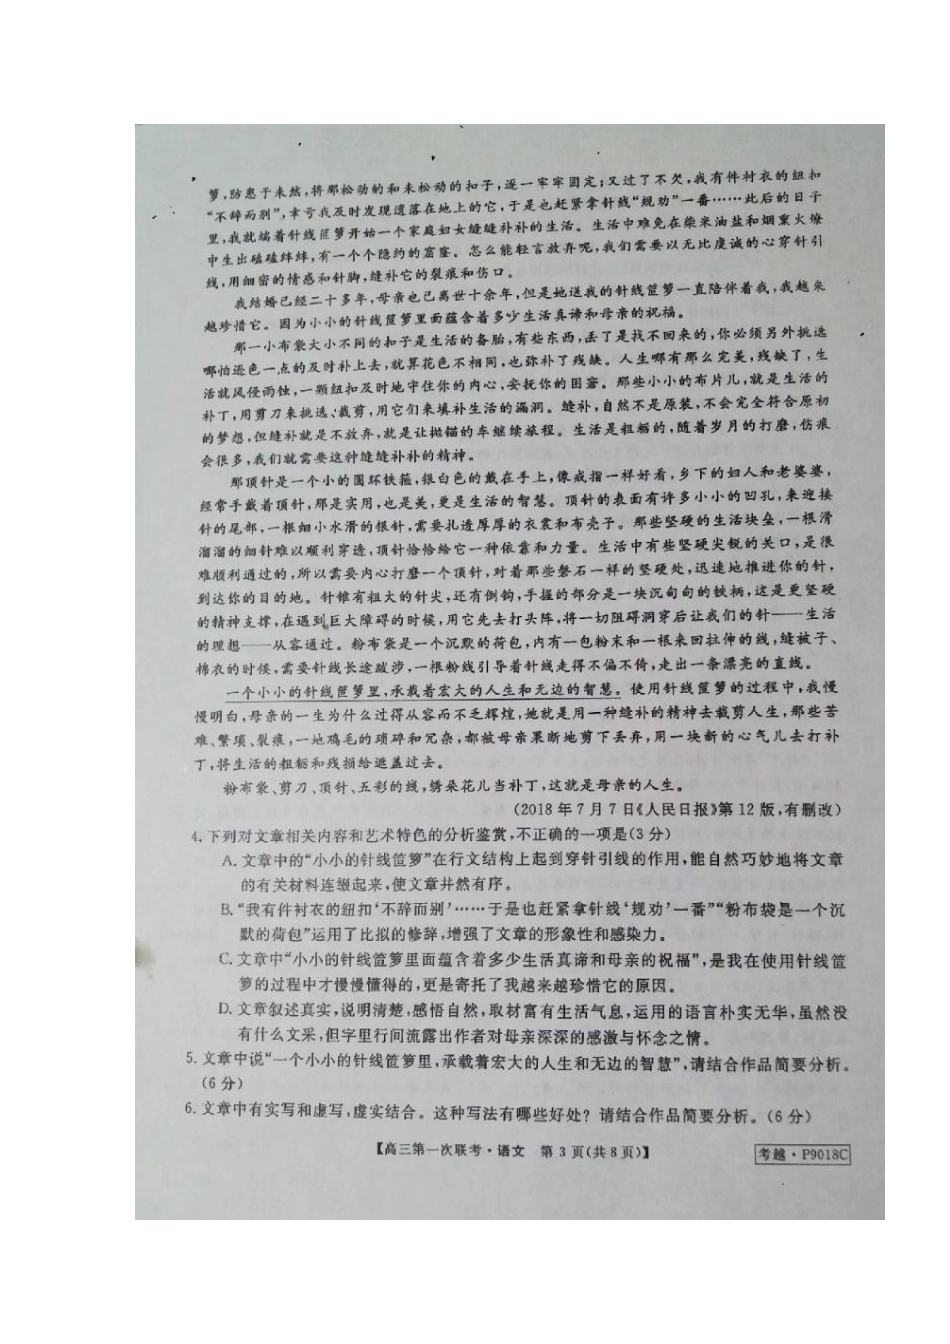 箩,防患于未然,将那松动的和未松动的扣子,逐一牢牢固定;又过了不久,我有件衬衣的纽扣
“不辞而别”,幸亏我及时发现遗落在地上的它,于是也赶紧拿针线“规劝”一番……此后的日子
里,我就端着针线笸箩开始一个家庭妇女缝缝补补的生活。生活中难免在柴米油盐和烟熏火燎
中生出磕磕绊绊,有一个个隐约的窟窿。怎么能轻言放弃呢,我们需要以无比虔诚的心穿针引
线,用细密的情感和针脚,缝补它的裂痕和伤口。
我结婚已经二十多年,母亲也已离世十余年,但是她送我的针线笸箩一直陪伴着我,我越来
越珍惜它。因为小小的针线笸箩里面蕴含着多少生活真谛和母亲的祝福。
那一小布袋大小不同的扣子是生活的备胎,有些东西,丢了是找不回来的,你必须另外挑选
哪怕逊色一点的及时补上去,就算花色不相同,也弥补了残缺。人生哪有那么完美,残缺了,生
活就风侵雨蚀,一颗纽扣及时地守住你的内心,安抚你的困窘。那些小小的布片儿,就是生活的
补丁,用剪刀来挑选、裁剪,用它们来填补生活的漏洞。缝补,自然不是原装,不会完全符合原初
的梦想,但缝补就是不放弃,就是让抛锚的车继续旅程。生活是粗粝的,随着岁月的打磨,伤痕
会很多,我们就需要这种缝缝补补的精神。
那顶针是一个小的圆环铁箍,银白色的戴在手上,像戒指一样好看,乡下的妇人和老婆婆,
经常手戴着顶针,那是实用,也是美,更是生活的智慧。顶针的表面有许多小小的凹孔,来迎接
针的尾部,一根细小水滑的银针,需要扎透厚厚的衣裳和布壳子。那些坚硬的生活块垒,一根滑
溜溜的细针难以顺利穿透,顶针恰恰给它一种依靠和力量。生活中有些坚硬尖锐的关口,是很
难顺利通过的,所以需要内心打磨一个顶针,对着那些磐石一样的坚硬处,迅速地推进你的针,
到达你的目的地。针锥有粗大的针尖,还有倒钩,手握的部分是一块沉甸甸的铁柄,这是更坚硬
的精神支撑,在遇到巨大障碍的时候,用它先去打头阵,将一切阻碍洞穿后让我们的针——生活
的理想——从容通过。粉布袋是一个沉默的荷包,内有一包粉末和一根来回拉伸的线,缝被子、
棉衣的时候,需要针线长途跋涉,一根粉线引导着针线走得不偏不倚,走出一条漂亮的直线。
一个小小的针线笸箩里,承载着宏大的人生和无边的智慧。使用针线笸箩的过程中,我慢
慢明白,母亲的一生为什么过得从容而不乏辉煌,她就是用一种缝补的精神去裁剪人生,那些苦
难、繁琐、裂痕,一地鸡毛的琐碎和冗杂,都被母亲果断地剪下丢弃,用一块新的心气儿去打补
丁,将生活的粗粝和残损给遮盖过去。
粉布袋、剪刀、顶针、五彩的线,绣朵花儿当补丁,这就是母亲的人生。
(2018年7月7日《人民日报》第12版,有删改)
4.下列对文章相关内容和艺术特色的分析鉴赏,不正确的一项是(3分)
A.文章中的“小小的针线笸箩”在行文结构上起到穿针引线的作用,能自然巧妙地将文章
的有关材料连缀起来,使文章井然有序。
B.“我有件衬衣的纽扣‘不辞而别’……于是也赶紧拿针线‘规劝’一番”“粉布袋是一个沉
默的荷包”运用了比拟的修辞,增强了文章的形象性和感染力。
C.文章中“小小的针线笸箩里面蕴含着多少生活真谛和母亲的祝福”,是我在使用针线笸
箩的过程中才慢慢懂得的,更是寄托了我越来越珍惜它的原因。
D.文章叙述真实,说明清楚,感悟自然,取材富有生活气息,运用的语言朴实无华,虽然没
有什么文采,但字里行间流露出作者对母亲深深的感激与怀念之情。
5.文章中说“一个小小的针线笸箩里,承载着宏大的人生和无边的智慧”,请结合作品简要分析。
(6分)
6.文章中有实写和虚写,虚实结合。这种写法有哪些好处?请结合作品简要分析。(6分)
【高三第一次联考·语文 第3页(共8页)】
考越·P9018C